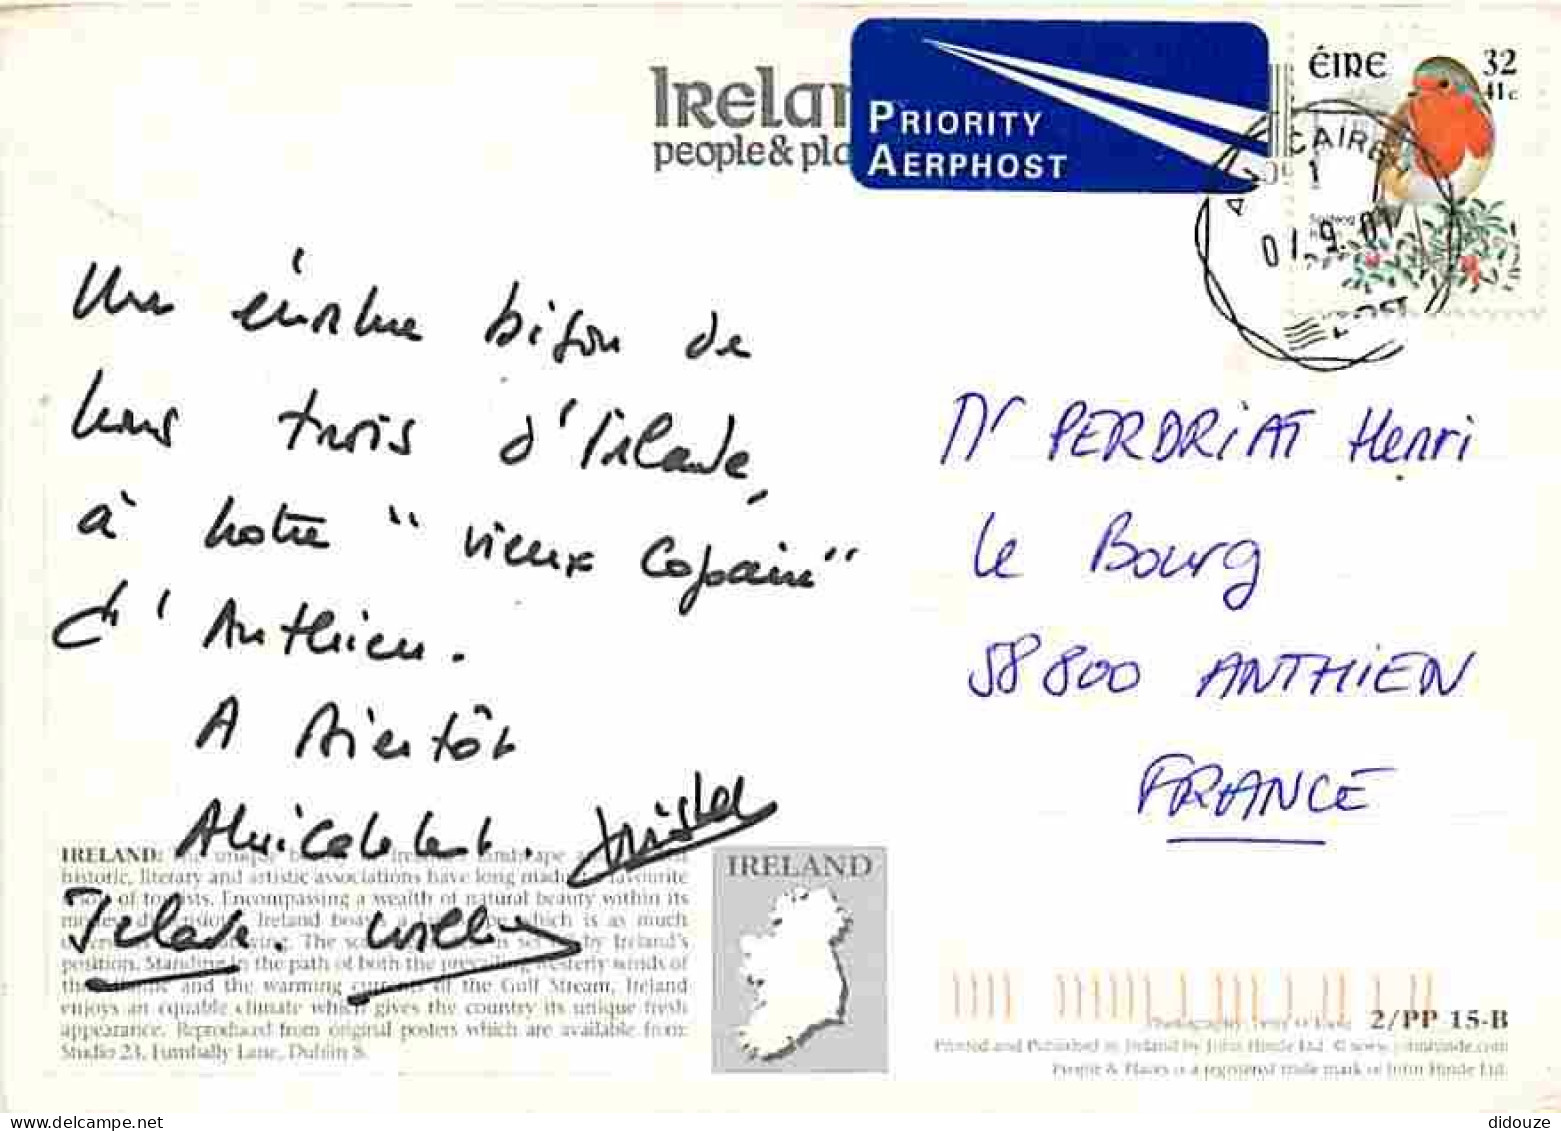 Irelan
people & pla
PRIORITY
AERPHOST
ÉIRE 32
41c
CAIRE
1
07.9.01
Une énorme bison de
nous trois d'Irlande,
à notre "vieux Copain"
d'Anthien.
A Bientôt
Amicalement.
IRELAND:
historic, literary and artistic associations have long made favourite
of tourists. Encompassing a wealth of natural beauty within its
Ireland boasts a which is as much
The set by Ireland's
position. Standing in the path of both the prevailing westerly winds of
the and the warming of the Gulf Stream, Ireland
enjoys an equable climate which gives the country its unique fresh
appearance. Reproduced from original posters which are available from:
Studio 23, Fumbally Lane, Dublin 8.
IRELAND
Mr PERDRIAT Henri
le Bourg
58800 ANTHIEN
FRANCE
2/PP 15-B
Printed and Published in Ireland by John Hinde Ltd. © www.johnhinde.com
People & Places is a registered trade mark of John Hinde Ltd.
didouze